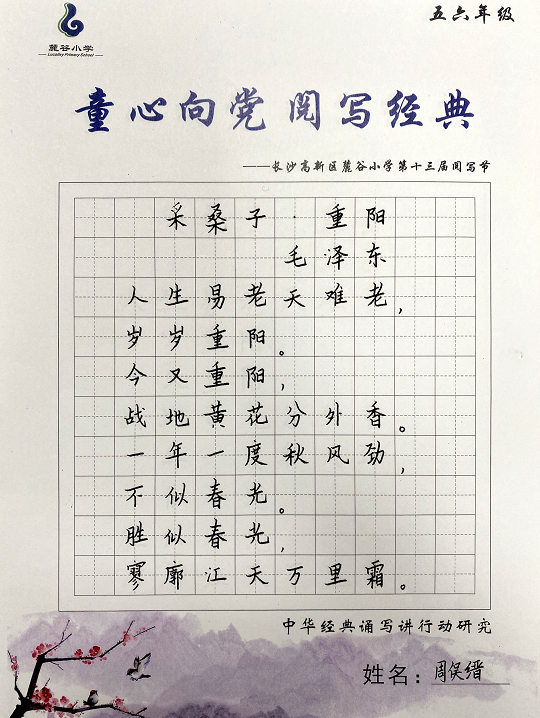 五六年级
麓谷小学
Lucky Primary School
童心向党 阅写经典
——长沙高新区麓谷小学第十三届阅写节
采桑子·重阳
毛泽东
人生易老天难老,
岁岁重阳。
今又重阳,
战地黄花分外香。
一年一度秋风劲,
不似春光。
胜似春光,
寥廓江天万里霜。
中华经典诵写讲行动研究
姓名:周俣缙